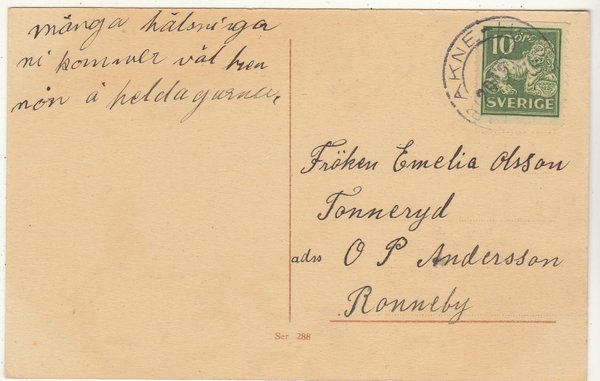 många hälsningar
ni kommer väl hem
nön å heldagarna,
10 öre
SVERIGE
Fröken Emelia Olsson
Tonneryd
adrs O P Andersson
Ronneby
Ser 288